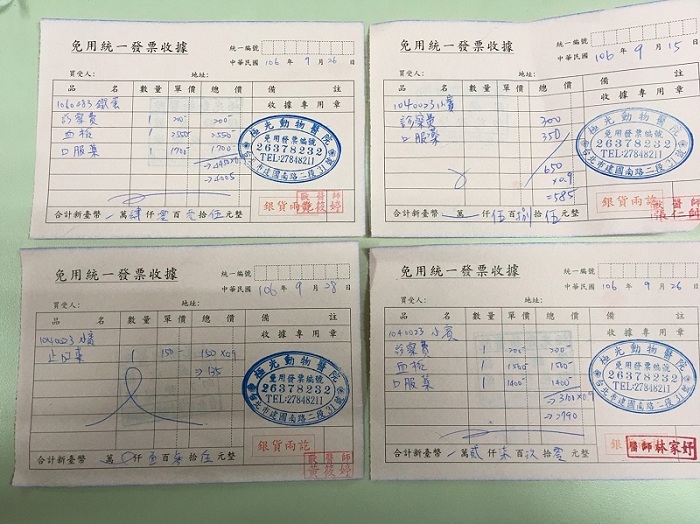 免用統一發票收據
統一編號
中華民國 106 年 9 月 26 日
買受人： 地址：
品 名 數量 單價 總價 備 註
收據專用章
診察費 1 200 200
血檢 1 2550 2550
口服藥 1 1700 1700
→ 4005
極光動物醫院
免用發票編號
26378232
TEL:27848211
台北市建國南路二段31號
銀貨兩訖
獸醫師
合計新臺幣 萬肆仟零百零拾伍元整
免用統一發票收據
統一編號
中華民國 106 年 9 月 15 日
買受人： 地址：
品 名 數量 單價 總價 備 註
收據專用章
1040023 小賓
診察費 300
口服藥 350
650
×0.9
=585
極光動物醫院
免用發票編號
26378232
TEL:27848211
台北市建國南路二段31號
銀貨兩訖
獸醫師
合計新臺幣 萬 仟伍百捌拾伍元整
免用統一發票收據
統一編號
中華民國 106 年 9 月 28 日
買受人： 地址：
品 名 數量 單價 總價 備 註
收據專用章
1040023 小賓
1 150 150×0.9
→ 135
極光動物醫院
免用發票編號
26378232
TEL:27848211
台北市建國南路二段31號
銀貨兩訖
獸醫師
合計新臺幣 萬 仟壹百 拾伍元整
免用統一發票收據
統一編號
中華民國 106 年 9 月 26 日
買受人： 地址：
品 名 數量 單價 總價 備 註
收據專用章
1040023 小賓
診察費 1 200 200
血檢 1 1500 1500
口服藥 1 1400 1400
→ 3100×0.9
→ 2790
極光動物醫院
免用發票編號
26378232
TEL:27848211
台北市建國南路二段31號
銀貨兩訖
醫師林家妤
合計新臺幣 萬貳仟柒百玖拾零元整